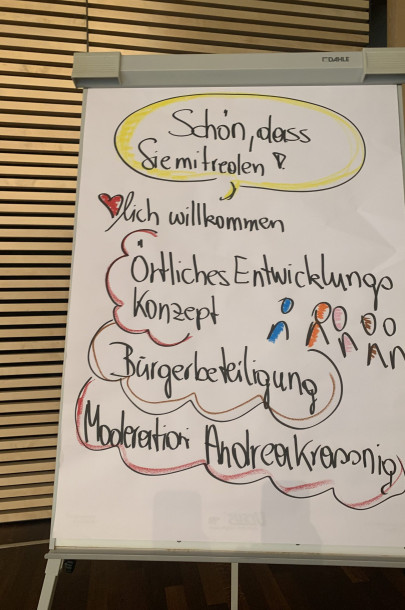 DAHLE
Schön, dass
Sie mitreden!
lich willkommen
Örtliches Entwicklungs
Konzept
Bürgerbeteiligung
Moderation Andrea Krassnig